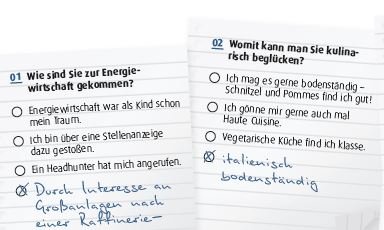 01 Wie sind Sie zur Energie-
wirtschaft gekommen?
Energiewirtschaft war als Kind schon
mein Traum.
Ich bin über eine Stellenanzeige
dazu gestoßen.
Ein Headhunter hat mich angerufen.
Durch Interesse an
Großanlagen nach
einer Raffinerie-
02 Womit kann man Sie kulina-
risch beglücken?
Ich mag es gerne bodenständig –
Schnitzel und Pommes find ich gut!
Ich gönne mir gerne auch mal
Haute Cuisine.
Vegetarische Küche find ich klasse.
italienisch
bodenständig